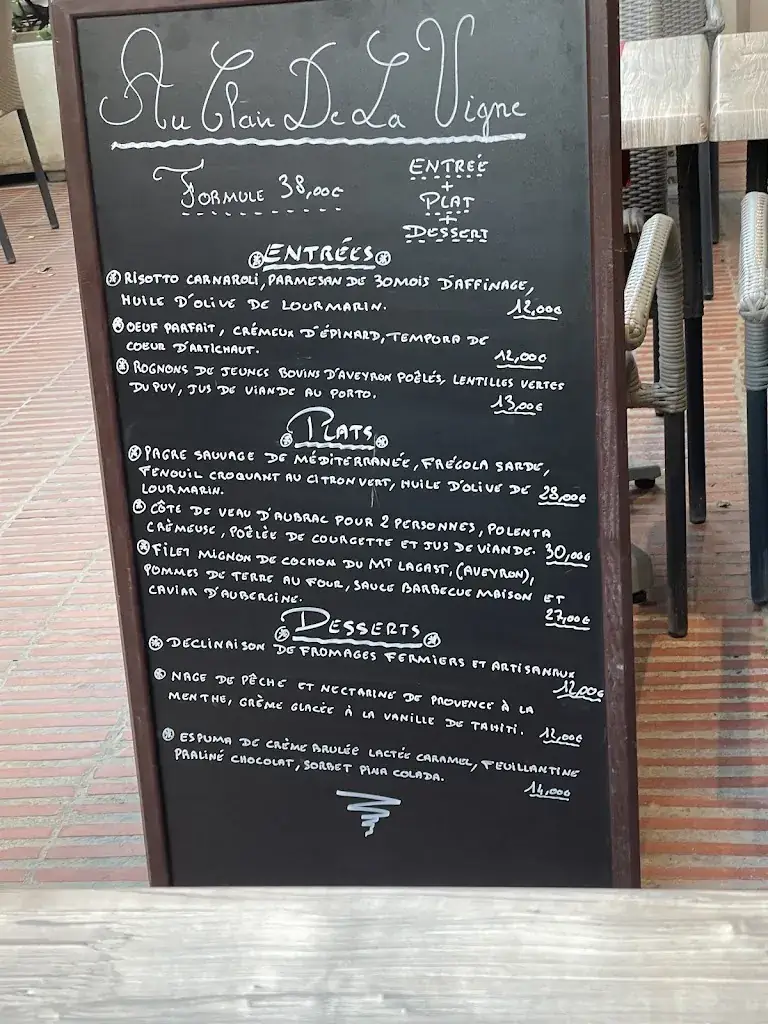 Au Clair De La Vigne
FORMULE 38,00€
ENTRÉE
+
PLAT
+
DESSERT
ENTRÉES
RISOTTO CARNAROLI, PARMESAN DE 30MOIS D'AFFINAGE,
HUILE D'OLIVE DE LOURMARIN. 12,00€
OEUF PARFAIT, CRÉMEUX D'ÉPINARD, TEMPURA DE
COEUR D'ARTICHAUT. 12,00€
ROGNONS DE JEUNES BOVINS D'AVEYRON POÊLÉS, LENTILLES VERTES
DU PUY, JUS DE VIANDE AU PORTO. 13,00€
PLATS
PAGRE SAUVAGE DE MÉDITERRANÉE, FRÉGOLA SARDE,
FENOUIL CROQUANT AU CITRON VERT, HUILE D'OLIVE DE
LOURMARIN. 28,00€
CÔTE DE VEAU D'AUBRAC POUR 2 PERSONNES, POLENTA
CRÈMEUSE, POÊLÉE DE COURGETTE ET JUS DE VIANDE. 30,00€
FILET MIGNON DE COCHON DU MT LAGAST, (AVEYRON),
POMMES DE TERRE AU FOUR, SAUCE BARBECUE MAISON ET
CAVIAR D'AUBERGINE. 27,00€
DESSERTS
DECLINAISON DE FROMAGES FERMIERS ET ARTISANAUX
12,00€
NAGE DE PÊCHE ET NECTARINE DE PROVENCE À LA
MENTHE, CRÈME GLACÉE À LA VANILLE DE TAHITI. 12,00€
ESPUMA DE CRÈME BRULÉE LACTÉE CARAMEL, FEUILLANTINE
PRALINÉ CHOCOLAT, SORBET PINA COLADA. 14,00€